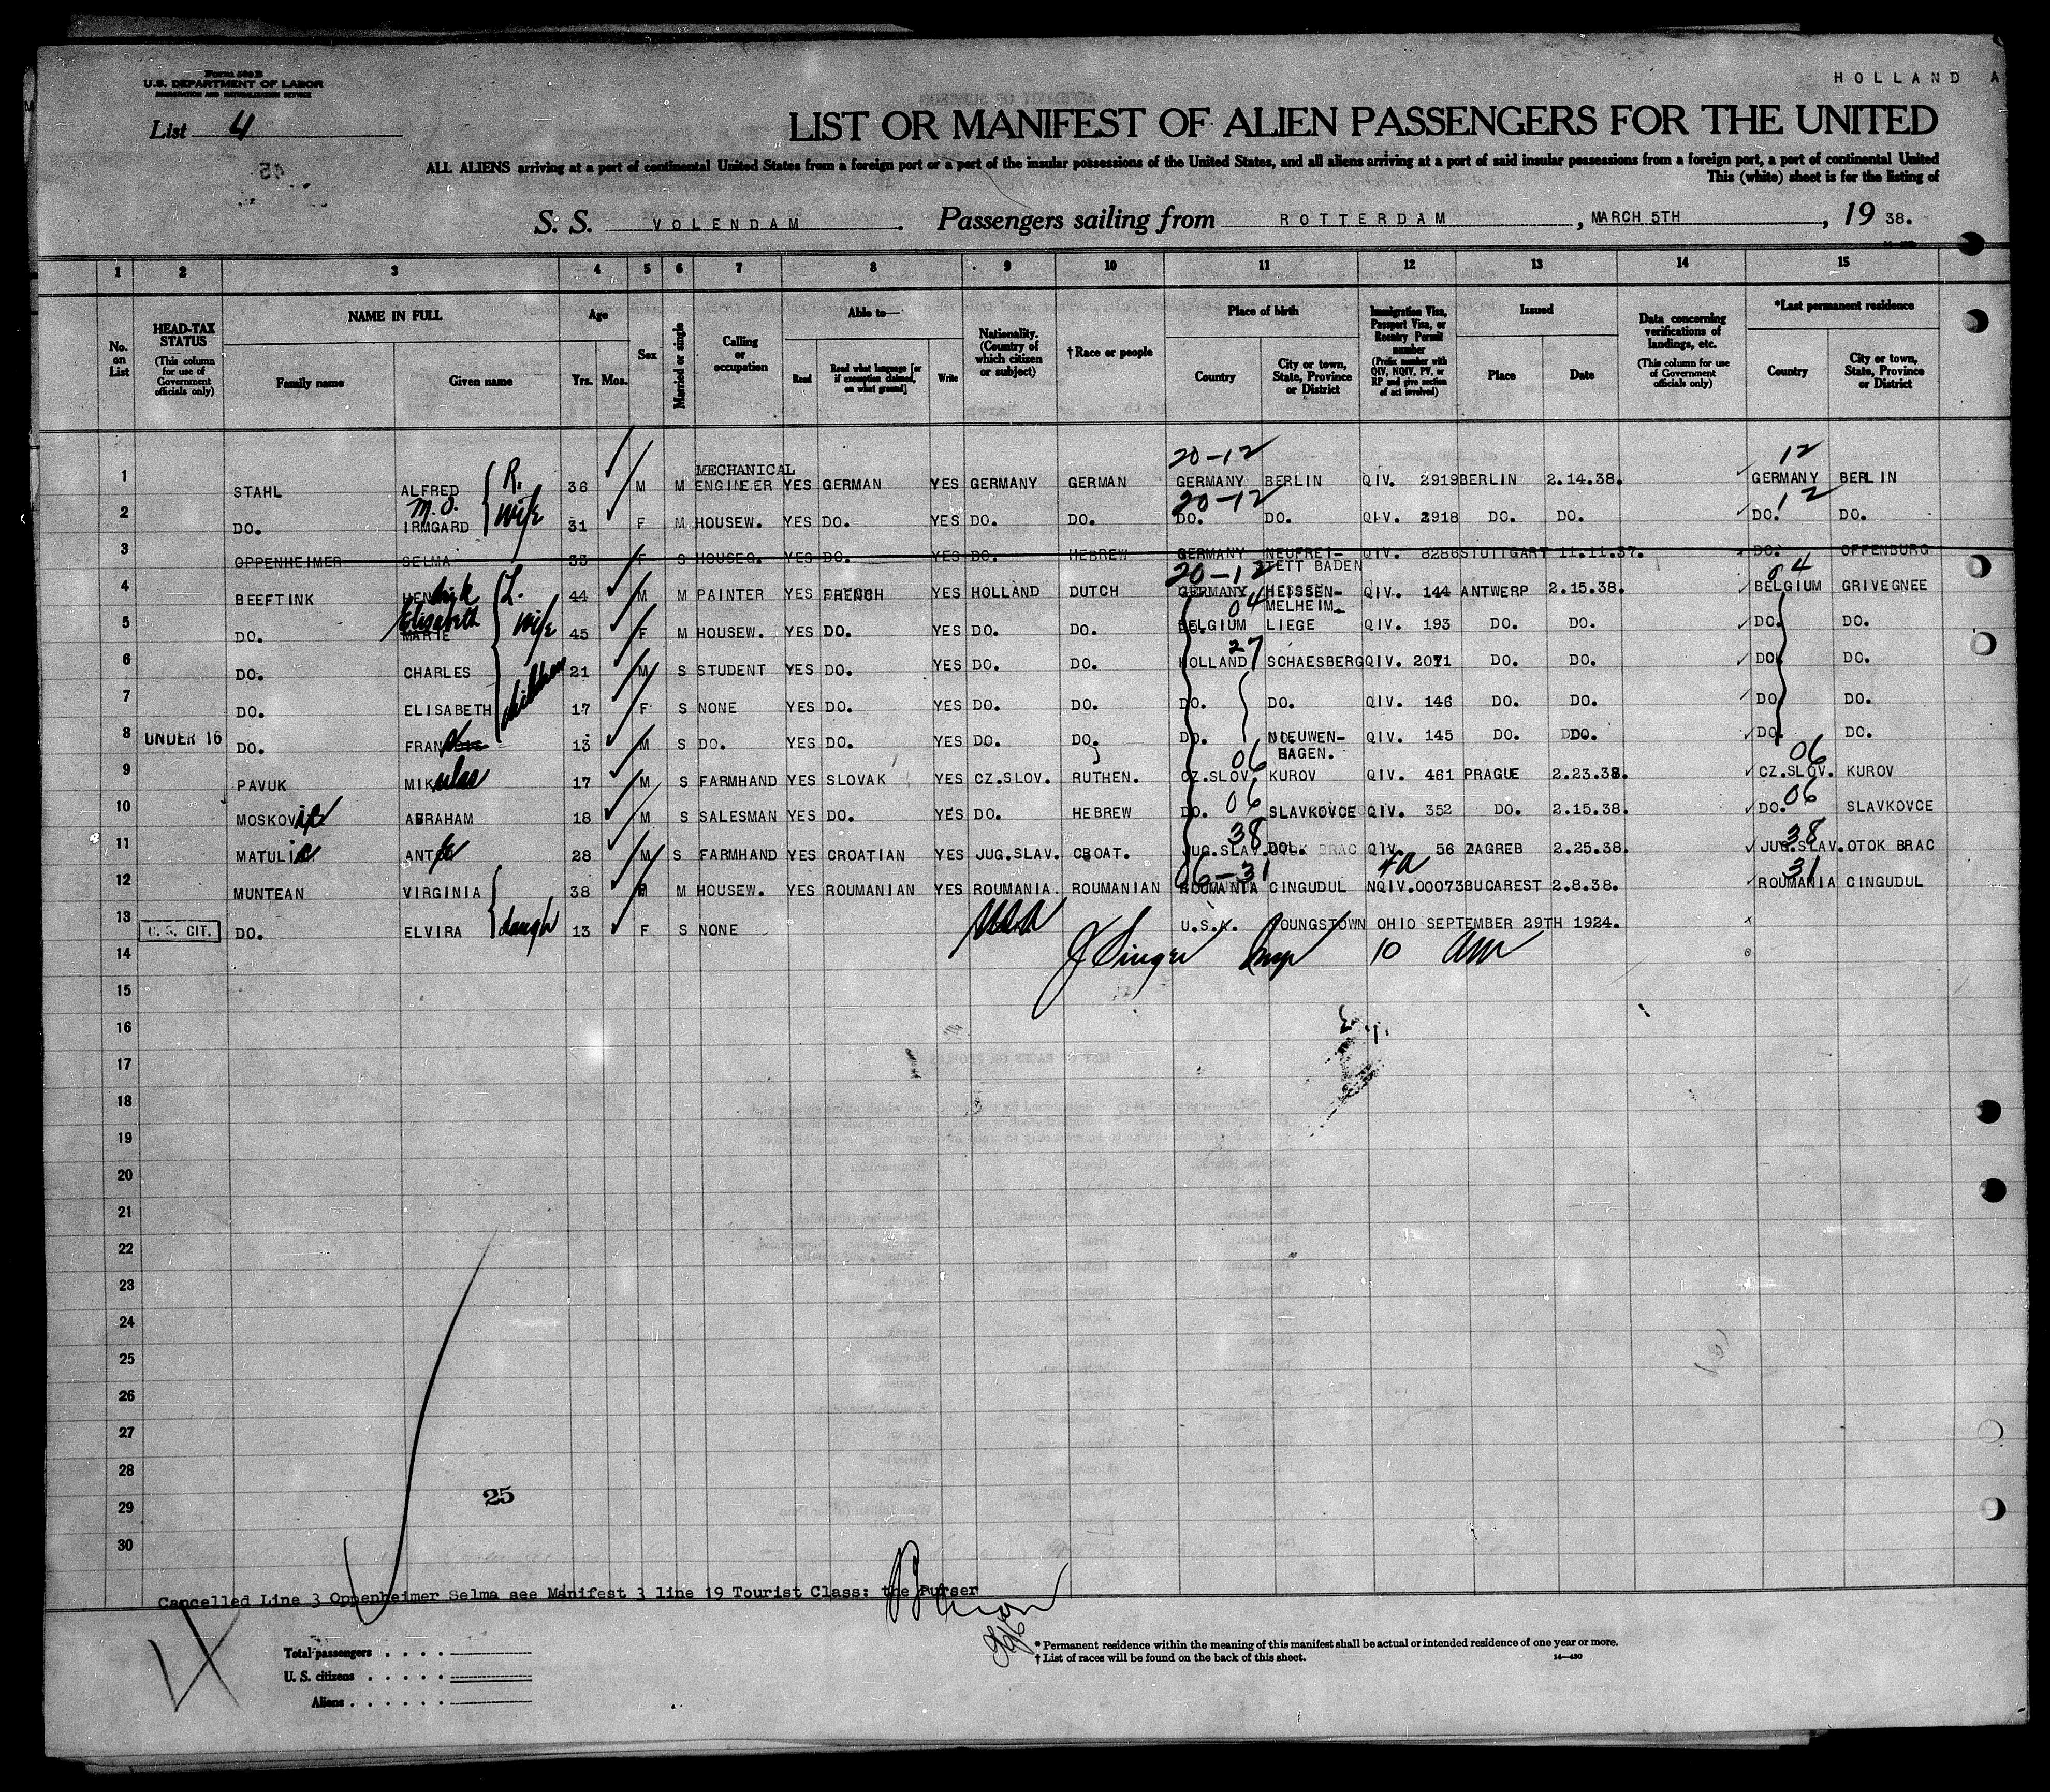 Form 500 B
U.S. DEPARTMENT OF LABOR
IMMIGRATION AND NATURALIZATION SERVICE
HOLLAND A
List 4
LIST OR MANIFEST OF ALIEN PASSENGERS FOR THE UNITED
45
ALL ALIENS arriving at a port of continental United States from a foreign port or a port of the insular possessions of the United States, and all aliens arriving at a port of said insular possessions from a foreign port, a port of continental United
This (white) sheet is for the listing of
S. S. VOLENDAM . Passengers sailing from ROTTERDAM , MARCH 5TH , 19 38.
1 2 3 4 5 6 7 8 9 10 11 12 13 14 15
No. on List
HEAD-TAX STATUS (This column for use of Government officials only)
NAME IN FULL Family name Given name
Age Yrs. Mos.
Sex
Married or single
Calling or occupation
Able to— Read Read what language [or if exemption claimed, on what ground] Write
Nationality. (Country of which citizen or subject)
†Race or people
Place of birth Country City or town, State, Province or District
Immigration Visa, Passport Visa, or Reentry Permit number (Prefix number with QIV, NQIV, PV, or RP and give section of act involved)
Issued Place Date
Data concerning verifications of landings, etc. (This column for use of Government officials only)
*Last permanent residence Country City or town, State, Province or District
20-12 12
1 STAHL ALFRED R. 36 M M MECHANICAL ENGINEER YES GERMAN YES GERMANY GERMAN GERMANY BERLIN QIV. 2919 BERLIN 2.14.38. GERMANY BERLIN
M.D. 20-12 12
2 DO. IRMGARD wife 31 F M HOUSEW. YES DO. YES DO. DO. DO. DO. QIV. 2918 DO. DO. DO. DO.
3 OPPENHEIMER SELMA 33 F S HOUSEG. YES DO. YES DO. HEBREW GERMANY NEUFREI-STETT BADEN QIV. 8286 STUTTGART 11.11.37. DO. OFFENBURG
20-12 04
4 BEEFTINK HENdrik L. 44 M M PAINTER YES FRENCH YES HOLLAND DUTCH GERMANY HESSSEN-MELHEIM. QIV. 144 ANTWERP 2.15.38. BELGIUM GRIVEGNEE
Elisabeth 04
5 DO. MARIE wife 45 F M HOUSEW. YES DO. YES DO. DO. BELGIUM LIEGE QIV. 193 DO. DO. DO. DO.
27
6 DO. CHARLES children 21 M S STUDENT YES DO. YES DO. DO. HOLLAND SCHAESBERG QIV. 2071 DO. DO. DO. DO.
7 DO. ELISABETH 17 F S NONE YES DO. YES DO. DO. DO. DO. QIV. 146 DO. DO. DO. DO.
8 UNDER 16 DO. FRAN 13 M S DO. YES DO. YES DO. DO. DO. NIEUWEN-HAGEN. QIV. 145 DO. DO. DO. DO.
06 06
9 PAVUK MIKulas 17 M S FARMHAND YES SLOVAK YES CZ.SLOV. RUTHEN. CZ.SLOV. KUROV QIV. 461 PRAGUE 2.23.38. CZ.SLOV. KUROV
06 06
10 MOSKOVic ABRAHAM 18 M S SALESMAN YES DO. YES DO. HEBREW DO. SLAVKOVCE QIV. 352 DO. 2.15.38. DO. SLAVKOVCE
38 38
11 MATULIC ANTE 28 M S FARMHAND YES CROATIAN YES JUG.SLAV. CROAT. JUG.SLAV. DOL. QIV. 56 ZAGREB 2.25.38. JUG.SLAV. OTOK BRAC
06-31 4a 31
12 MUNTEAN VIRGINIA 38 M HOUSEW. YES ROUMANIAN YES ROUMANIA. ROUMANIAN ROUMANIA CINGUDUL NQIV. 00073 BUCAREST 2.8.38. ROUMANIA CINGUDUL
13 U.S. CIT. DO. ELVIRA daugh 13 F S NONE USA U.S.A. YOUNGSTOWN OHIO SEPTEMBER 29TH 1924. x
14 J Singer Insp 10 am
15
16
17
18
19
20
21
22
23
24
25
26
27
28
29
25
30
Cancelled Line 3 Oppenheimer Selma see Manifest 3 line 19 Tourist Class: the Purser
Total passengers
U. S. citizens
Aliens
* Permanent residence within the meaning of this manifest shall be actual or intended residence of one year or more.
† List of races will be found on the back of this sheet.
14—430